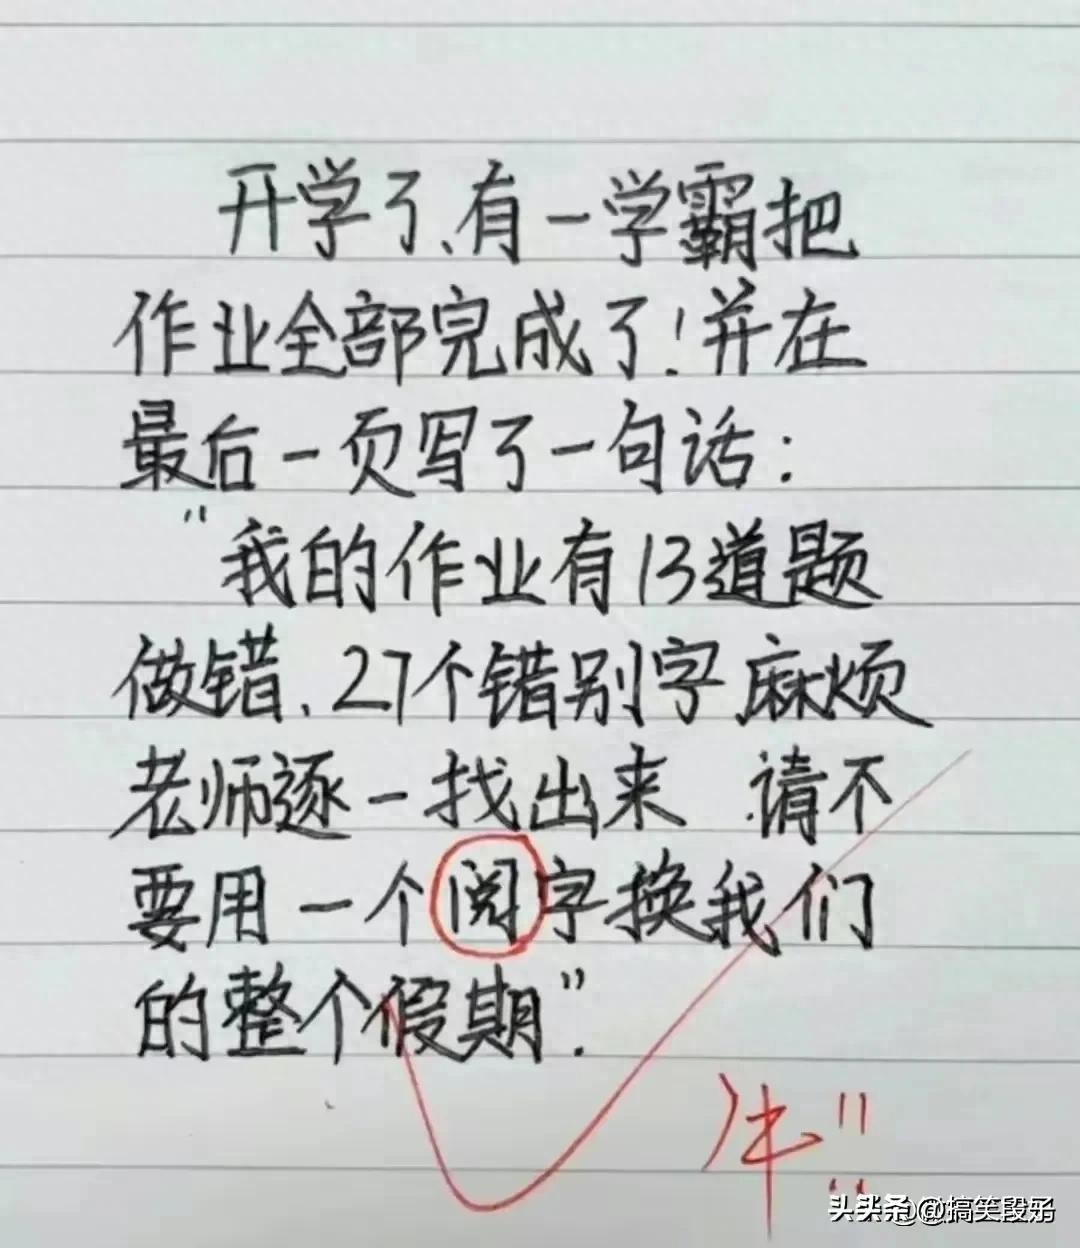 开学了、有一学霸把
作业全部完成了！并在
最后一页写了一句话：
“我的作业有13道题
做错、27个错别字麻烦
老师逐一找出来 .请不
要用一个阅字换我们
的整个假期”.
牛!!
头条 @搞笑段子